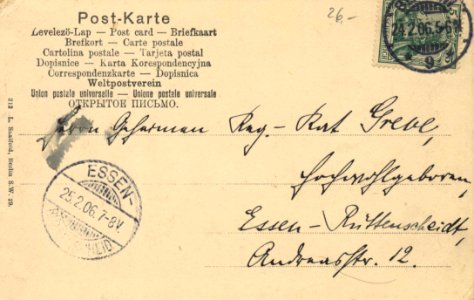 26.-
Post-Karte
Levelező-Lap — Post card — Briefkaart
Brefkort — Carte postale
Cartolina postale — Tarjeta postal
Dopisnice — Karta Korespondencyjna
Correspondenzkarte — Dopisnica
Weltpostverein
Union postale universelle — Unione postale universale
ОТКРЫТОЕ ПИСЬМО.
24.2.06.5-6N
* 9
212 L. Saalfeld, Berlin S.W. 29.
Herrn Geheimen Reg.-Rat Greve,
Hochwohlgeboren,
Essen-Rüttenscheidt,
Andreasstr. 12.
ESSEN-
25.2.06.7-8V.